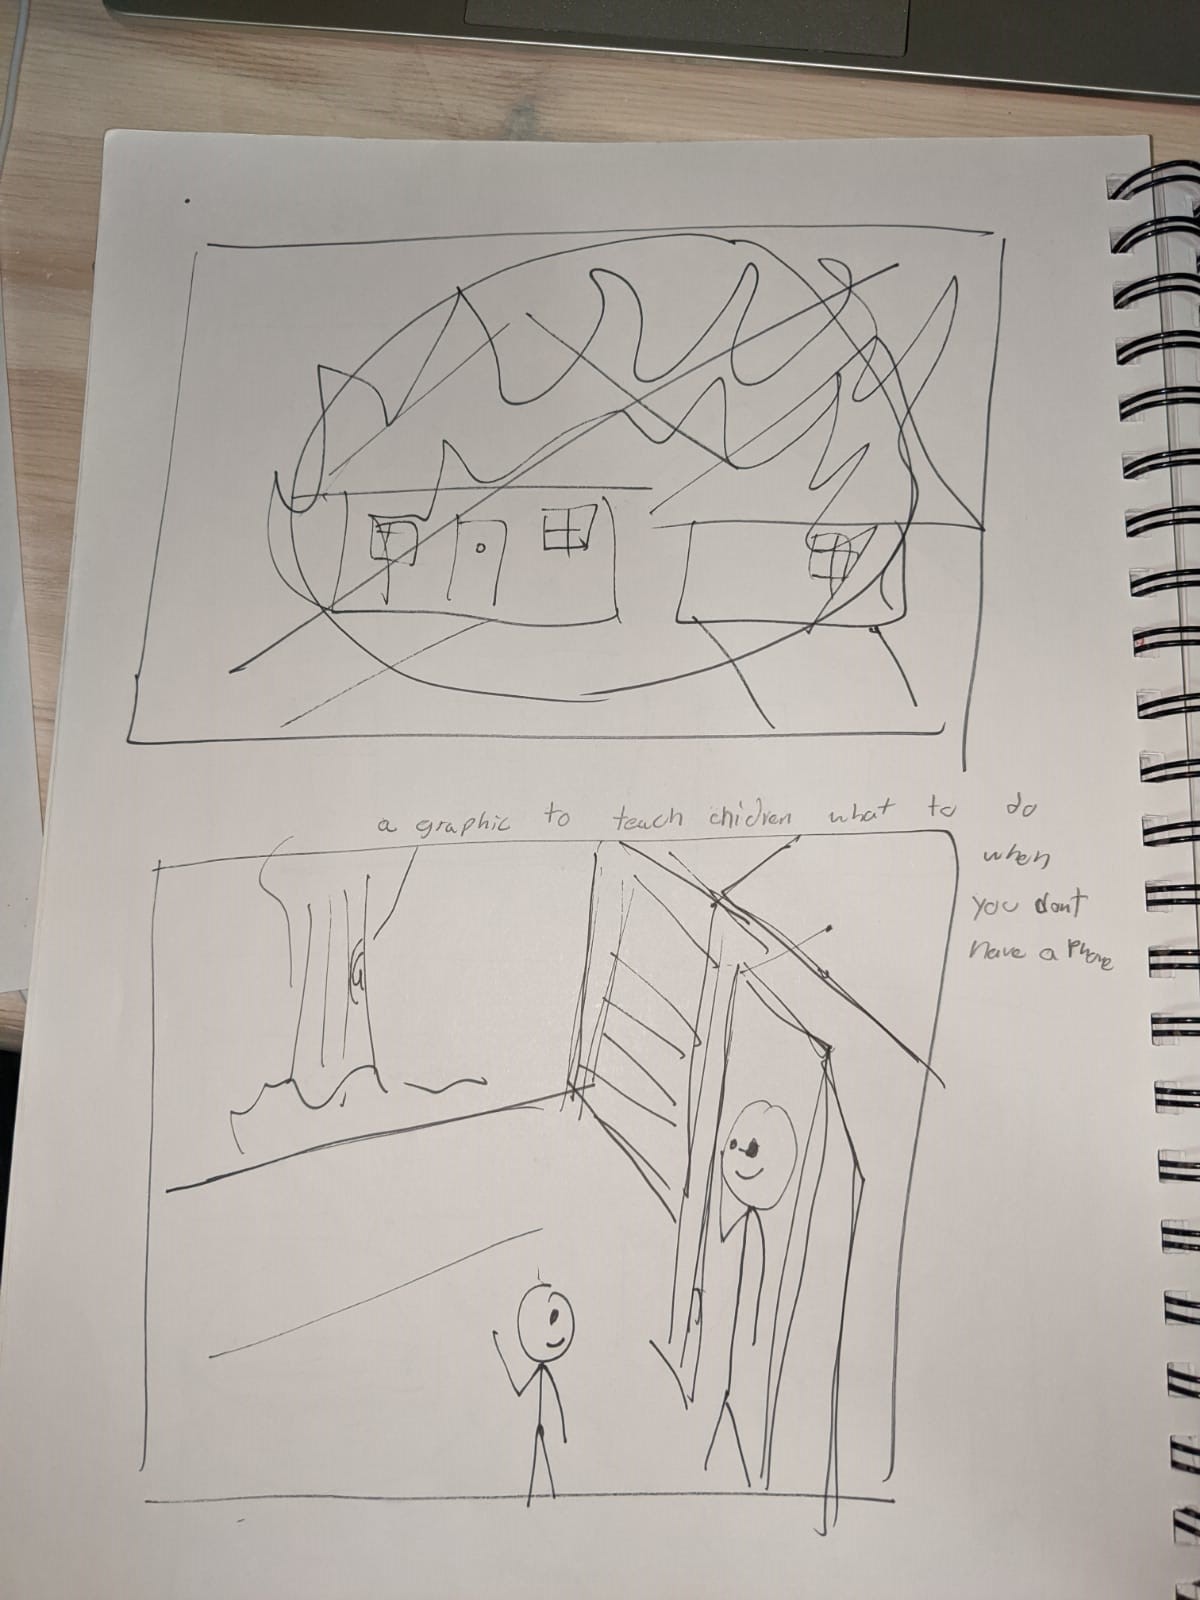 a graphic to teach chidren what to do
when
you dont
have a phone